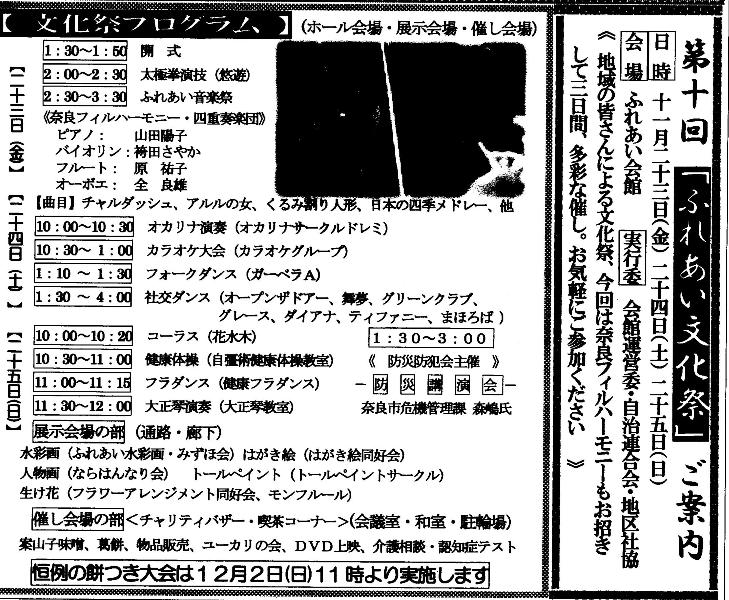 第十回 「ふれあい文化祭」 ご案内
日時 十一月二十三日(金)二十四日(土)二十五日(日)
会場 ふれあい会館 実行委 会館運営委・自治連合会・地区社協
《 地域の皆さんによる文化祭、今回は奈良フィルハーモニーもお招き
して三日間、多彩な催し。お気軽にご参加ください 》
【 文化祭プログラム 】 (ホール会場・展示会場・催し会場)
【二十三日(金)】
1:30〜1:50 開 式
2:00〜2:30 太極拳演技(悠遊)
2:30〜3:30 ふれあい音楽祭
《奈良フィルハーモニー・四重奏楽団》
ピアノ: 山田陽子
バイオリン:袴田さやか
フルート: 原 祐子
オーボエ: 全 良雄
【曲目】チャルダッシュ、アルルの女、くるみ割り人形、日本の四季メドレー、他
【二十四日(土)】
10:00〜10:30 オカリナ演奏(オカリナサークルドレミ)
10:30〜 1:00 カラオケ大会(カラオケグループ)
1:10 〜 1:30 フォークダンス(ガーベラA)
1:30 〜 4:00 社交ダンス(オープンザドアー、舞夢、グリーンクラブ、
グレース、ダイアナ、ティファニー、まほろば)
【二十五日(日)】
10:00〜10:20 コーラス(花水木)
10:30〜11:00 健康体操(自彊術健康体操教室)
11:00〜11:15 フラダンス(健康フラダンス)
11:30〜12:00 大正琴演奏(大正琴教室)
1:30〜3:00
《 防災防犯会主催 》
―防災講演会―
奈良市危機管理課 森嶋氏
展示会場の部(通路・廊下)
水彩画(ふれあい水彩画・みずほ会)はがき絵(はがき絵同好会)
人物画(ならはんなり会) トールペイント(トールペイントサークル)
生け花(フラワーアレンジメント同好会、モンフルール)
催し会場の部<チャリティバザー・喫茶コーナー>(会議室・和室・駐輪場)
案山子味噌、葛餅、物品販売、ユーカリの会、DVD上映、介護相談・認知症テスト
恒例の餅つき大会は12月2日(日)11時より実施します